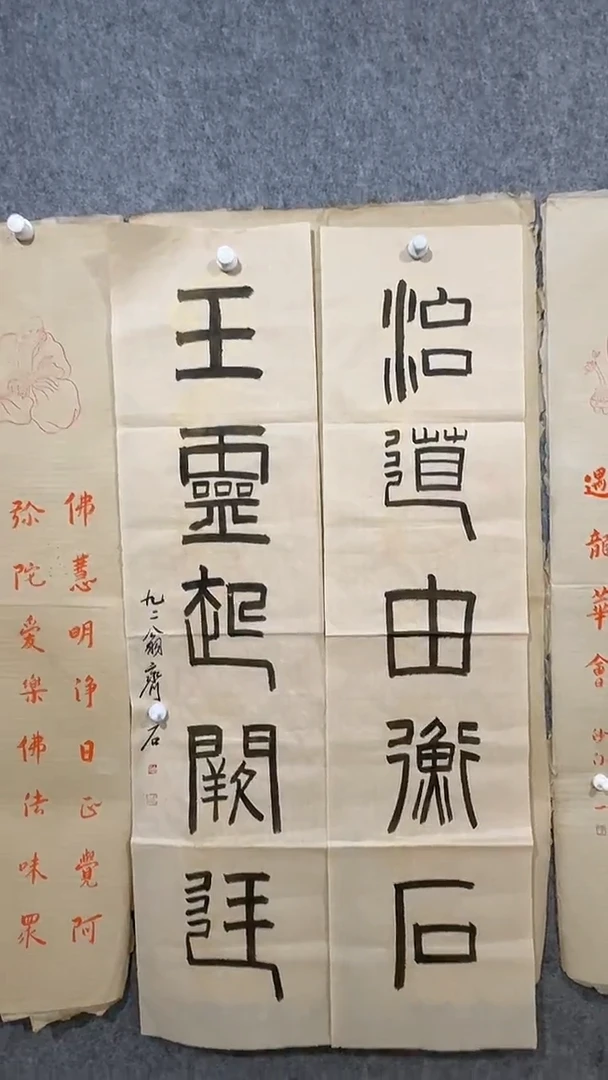 遇龍華會
沙门 一
治道由衡石
王靈起闕廷
九二翁齊 石
佛慧明淨日正覺阿
弥陀愛樂佛法味眾